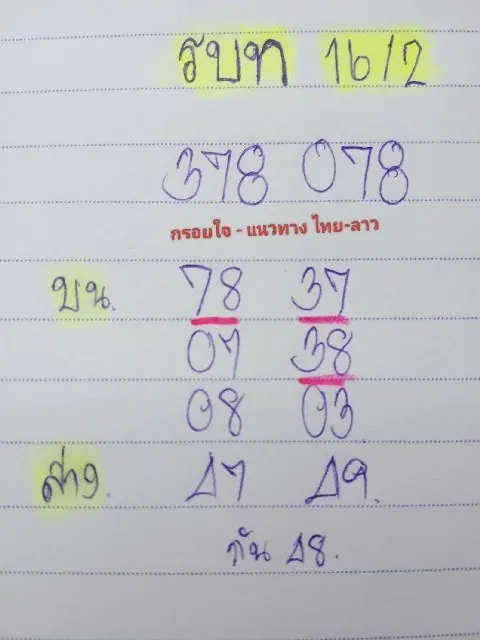 รบท 16/2
378 078
กรอยใจ - แนวทาง ไทย-ลาว
บน. 78 37
07 38
08 03
ล่าง. 47 49.
กัน 48.